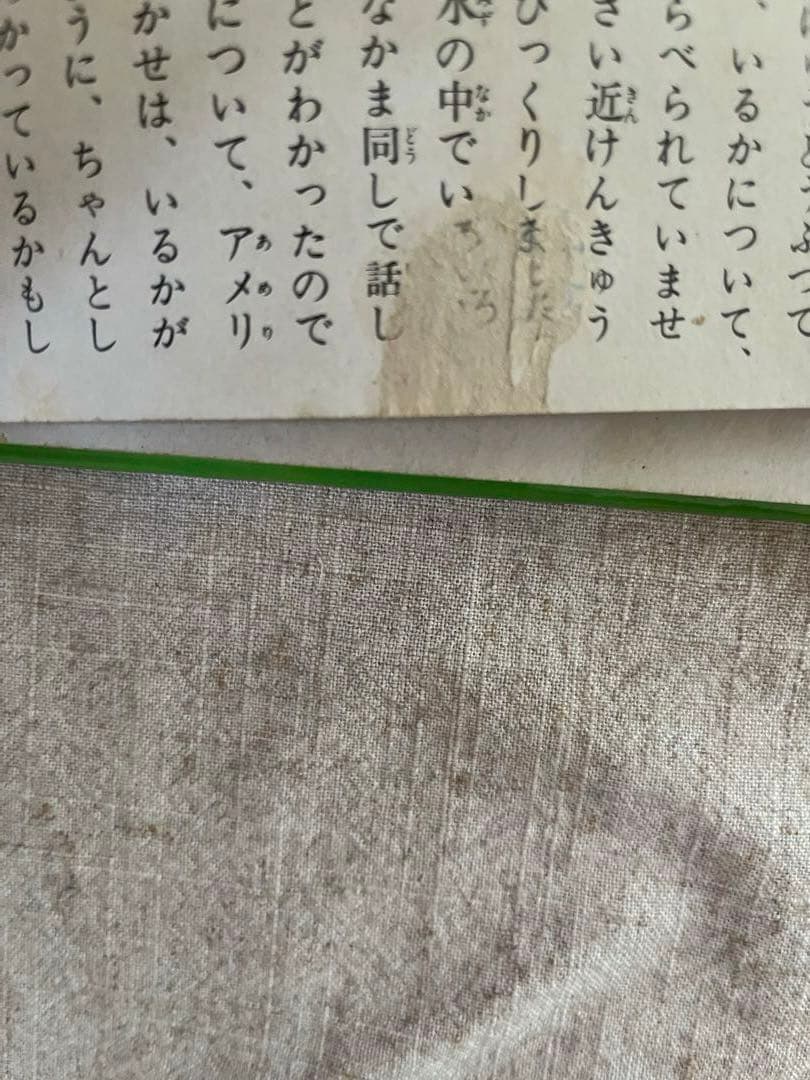 どうぶつで
、いるかについて、
らべられていませ
さい近けんきゅう
びっくりしました
水の中でいろいろ
なかま同しで話し
とがわかったので
について、アメリ
かせは、いるかが
うに、ちゃんとし
かっているかもし